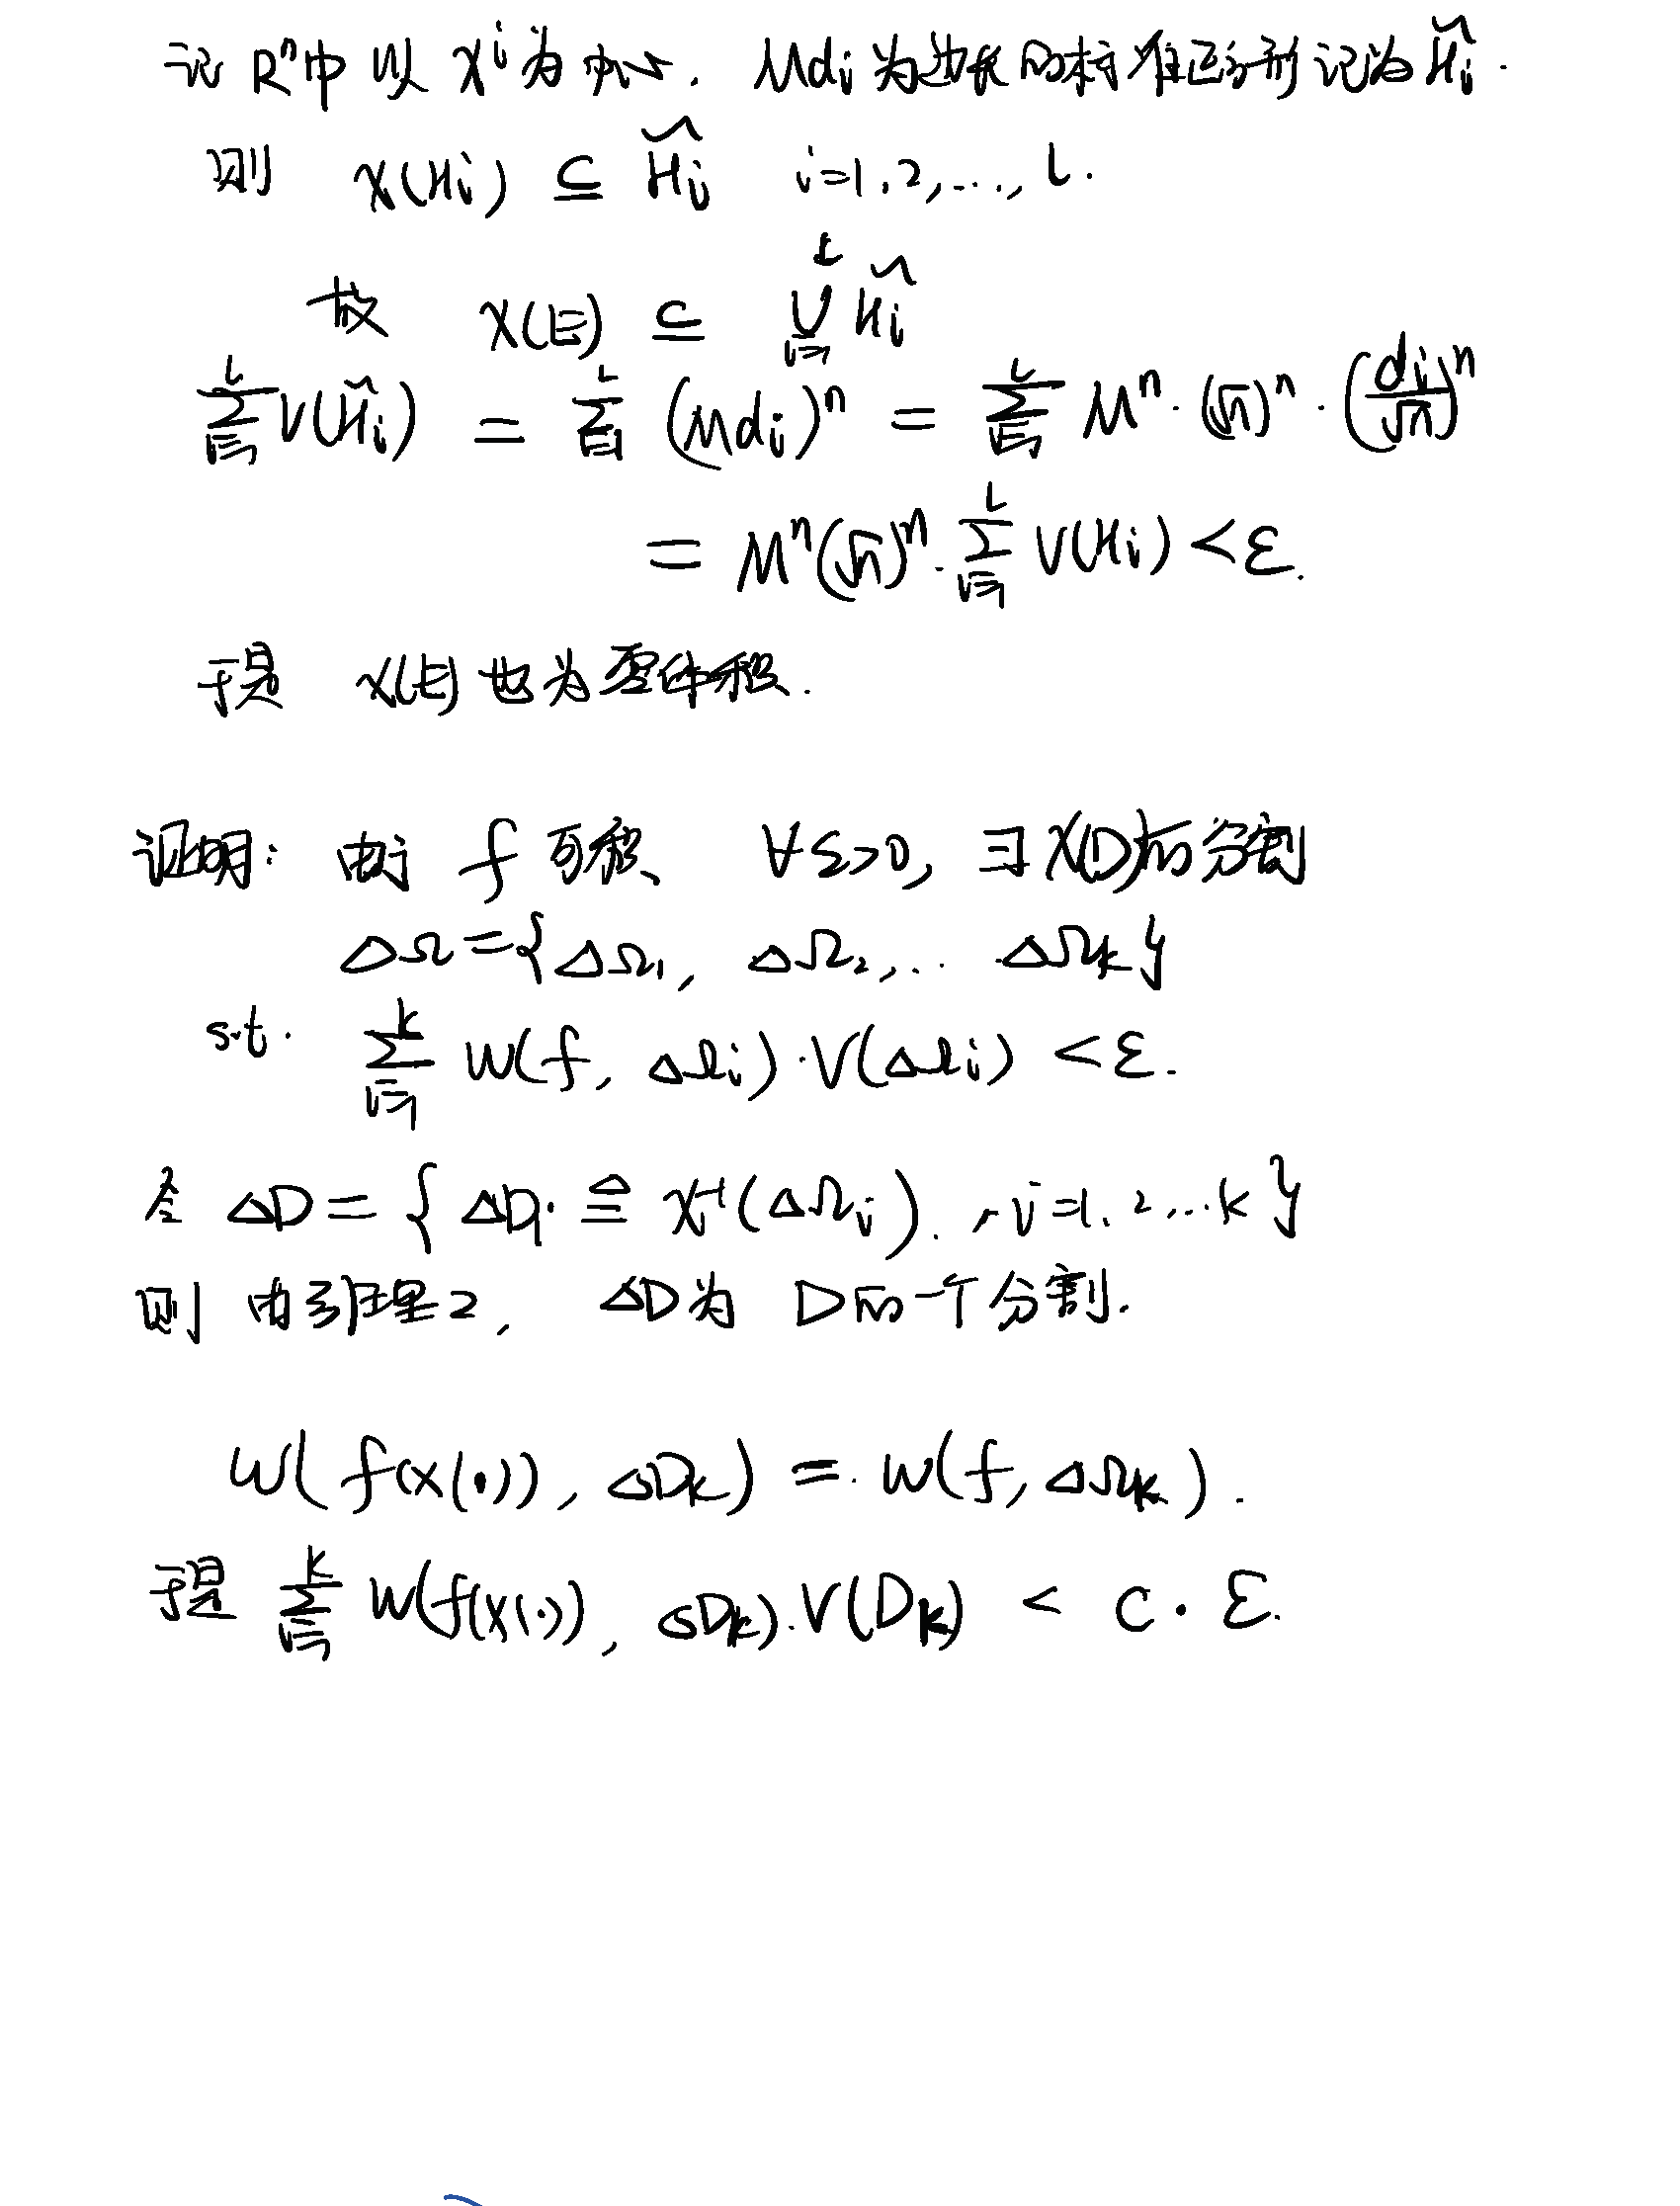 记 Rⁿ中 以 xⁱ 为 中心, Mdᵢ 为边长的标准正方形记为 H̃ᵢ.
则 x(Hᵢ) ⊆ H̃ᵢ i=1,2,...,l.
故 x(E) ⊆ ⋃ᵢ₌₁ˡ H̃ᵢ
∑ᵢ₌₁ˡ V(H̃ᵢ) = ∑ᵢ₌₁ˡ (Mdᵢ)ⁿ = ∑ᵢ₌₁ˡ Mⁿ·(√n)ⁿ·(dᵢ/√n)ⁿ
= Mⁿ(√n)ⁿ·∑ᵢ₌₁ˡ V(Hᵢ) < ε.
于是 x(E) 也为零体积.
证明: 由于 f 可积, ∀ε>0, ∃ x(D)的分割
ΔΩ={ΔΩ₁, ΔΩ₂,... ΔΩₖ}
s.t. ∑ᵢ₌₁ᵏ w(f, ΔΩᵢ)·V(ΔΩᵢ) < ε.
令 ΔD = { ΔDᵢ ≜ x⁻¹(ΔΩᵢ), i=1,2,...k }
则 由引理2, ΔD为 D的一个分割.
w(f(x(·)), ΔDₖ) = w(f, ΔΩₖ).
于是 ∑ᵢ₌₁ᵏ w(f(x(·)), ΔDₖ)·V(Dₖ) < C·ε.